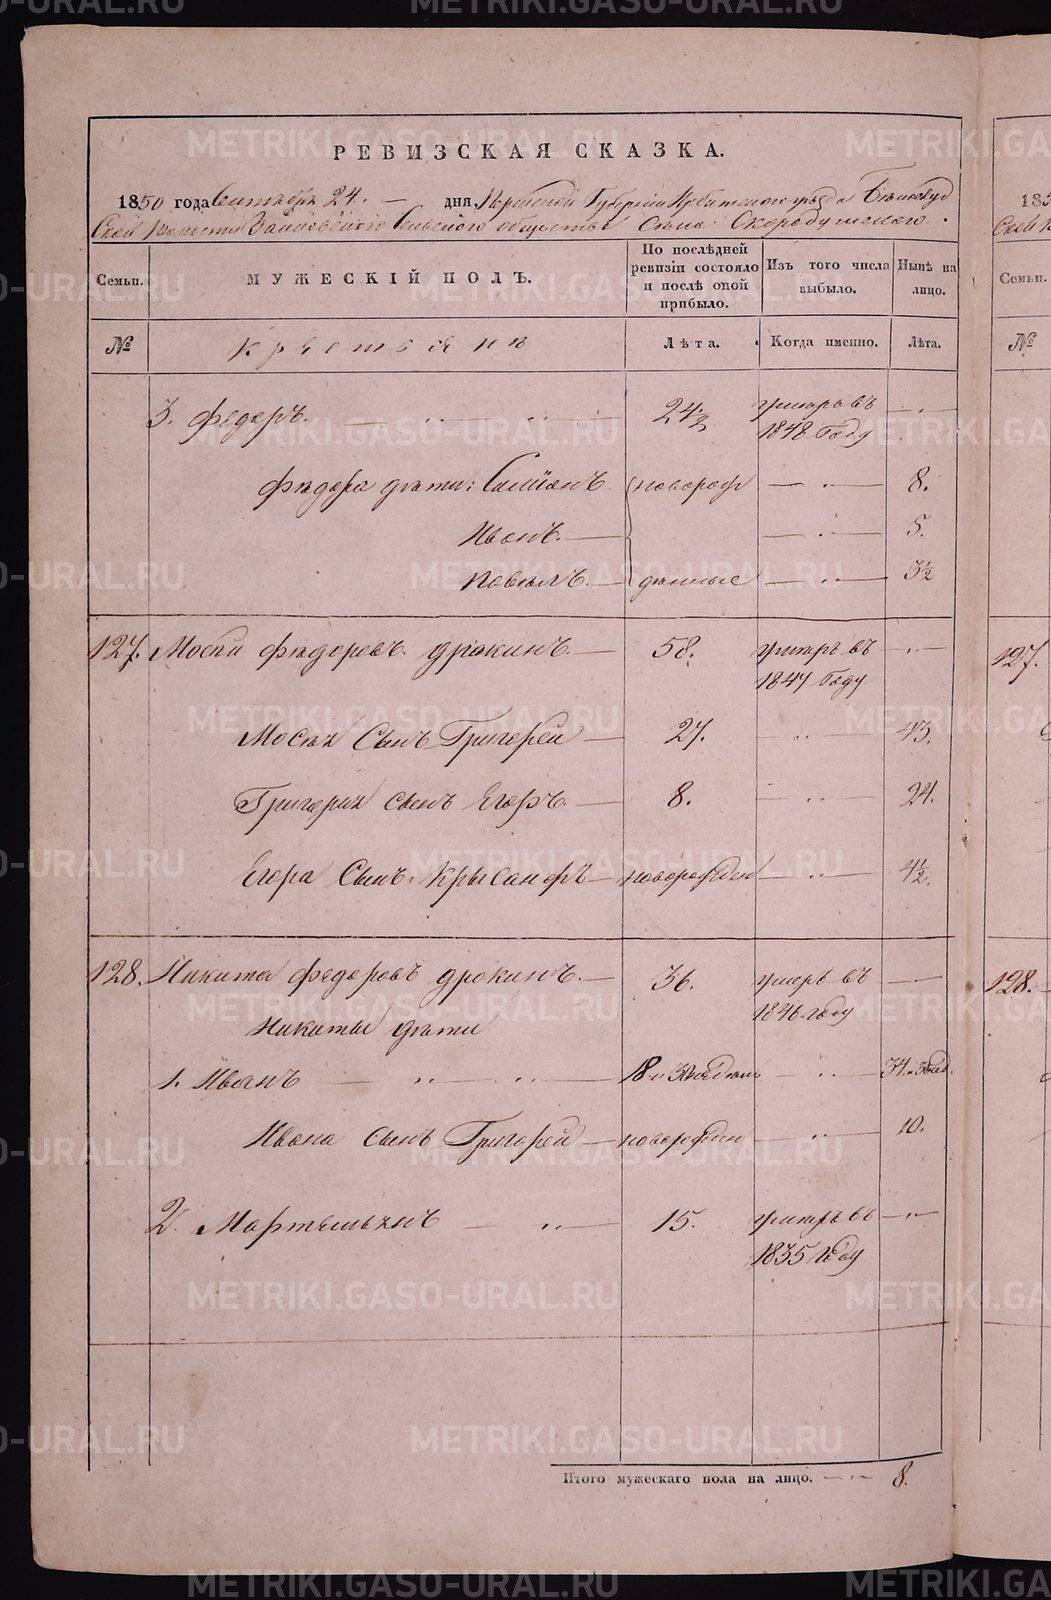 РЕВИЗСКАЯ СКАЗКА.
1850 года Сентября 24. — дня, Пермской Губернии Ирбитского уезда Белослуд
ской волости Сельского общества Села Скородумского.
Семьи.
МУЖЕСКІЙ ПОЛЪ.
По послѣдней ревизіи состояло и послѣ оной прибыло.
Изъ того числа выбыло.
Нынѣ на лицо.
№
Крестьяне
Лѣта.
Когда именно.
Лѣта.
3. Федоръ. — 24½ умеръ въ 1848 Году —
Федора дѣти: Симіонъ новорож — 8.
Иванъ. — 5.
Павелъ. — денные — 3½
127. Мосѣй Федоровъ дрокинъ. — 58. умеръ въ 1847 Году —
Мосѣя Сынъ Григорей — 27. — 43.
Григорья сынъ Егоръ. — 8. — 24.
Егора Сынъ Крысанфъ — новорожден — 4½.
128. Никита Федоровъ дрокинъ. — 36. умеръ въ 1846 году —
Никиты дѣти
1. Иванъ — 18 и 3 недели — 34 и 3 нед.
Ивана сынъ Григорей — новорожден — 10.
2. Мартемьянъ — 15. умеръ въ 1835 Году —
Итого мужескаго пола на лицо. — 8.
185
Семьи.
№
127.
128.
METRIKI.GASO-URAL.RU